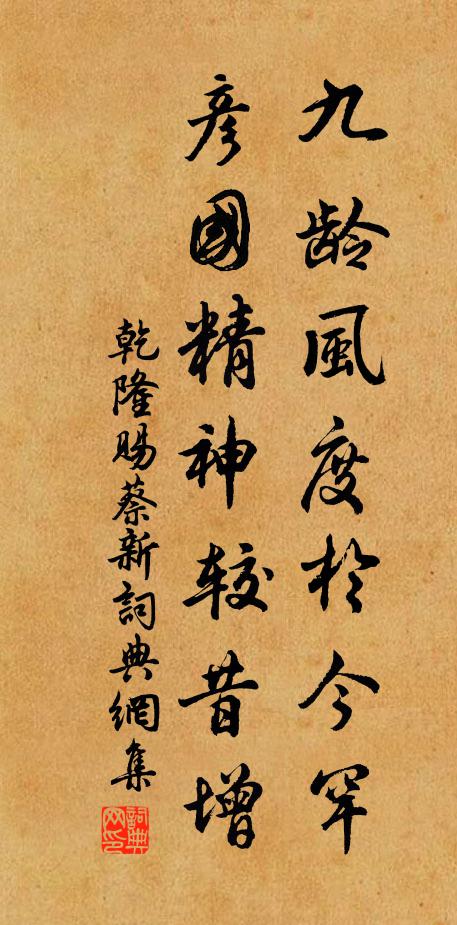 九齡風度於今罕
彦國精神較昔增
乾隆賜蔡新詞典網集
詞典网印